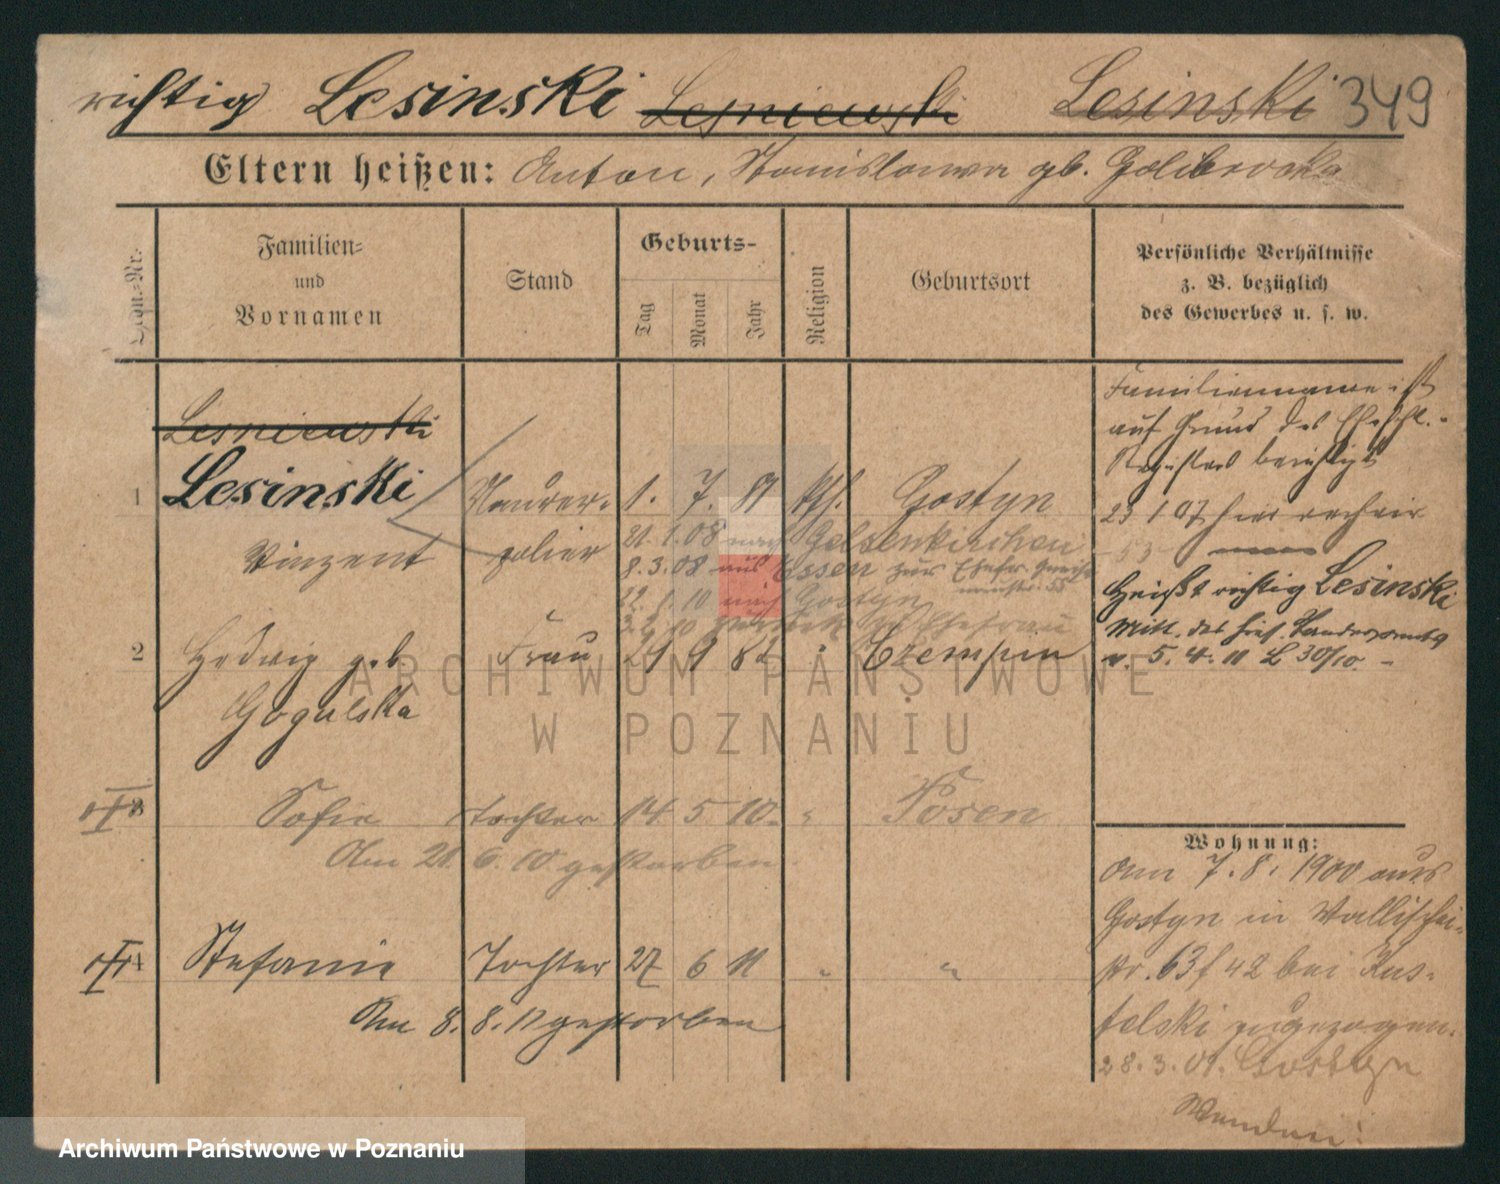 richtig Lesinski Lesniewski Lesinski 349
Eltern heißen: Anton, Stanislawa gb. Golibrocka
Ordn.-Nr.
Familien-
und
Vornamen
Stand
Geburts-
Tag
Monat
Jahr
Religion
Geburtsort
Persönliche Verhältnisse
z. B. bezüglich
des Gewerbes u. s. w.
Lesniewski
1 Lesinski Maurer- 1. 7. 81 kth. Gostyn
Vinzent polier
21. 1. 08 nach Gelsenkirchen
8. 3. 08 aus Essen zur Ehefr.
22. 1. 10 nach Gostyn
zurück zu Ehefrau
2 Hedwig geb. Frau 29 9 82 " Czempin
Gogulska
3 Sofie Tochter 14 5 10. " Posen
Am 21. 6. 10 gestorben
4 Stefanie Tochter 27 6 11 " "
Am 8. 8. 11 gestorben
Familienname ist
auf Grund des
Registers berichtigt
23 1 07
Heißt richtig Lesinski
Mitt. des hies. Standesamts
v. 5. 4. 11 L 30/10. -
Wohnung:
Am 7. 8. 1900 aus
Gostyn in Wallischei-
str. 63 f 42 bei Kus-
telski zugezogen.
28. 3. 01. Gostyn
ARCHIWUM PAŃSTWOWE
W POZNANIU
Archiwum Państwowe w Poznaniu